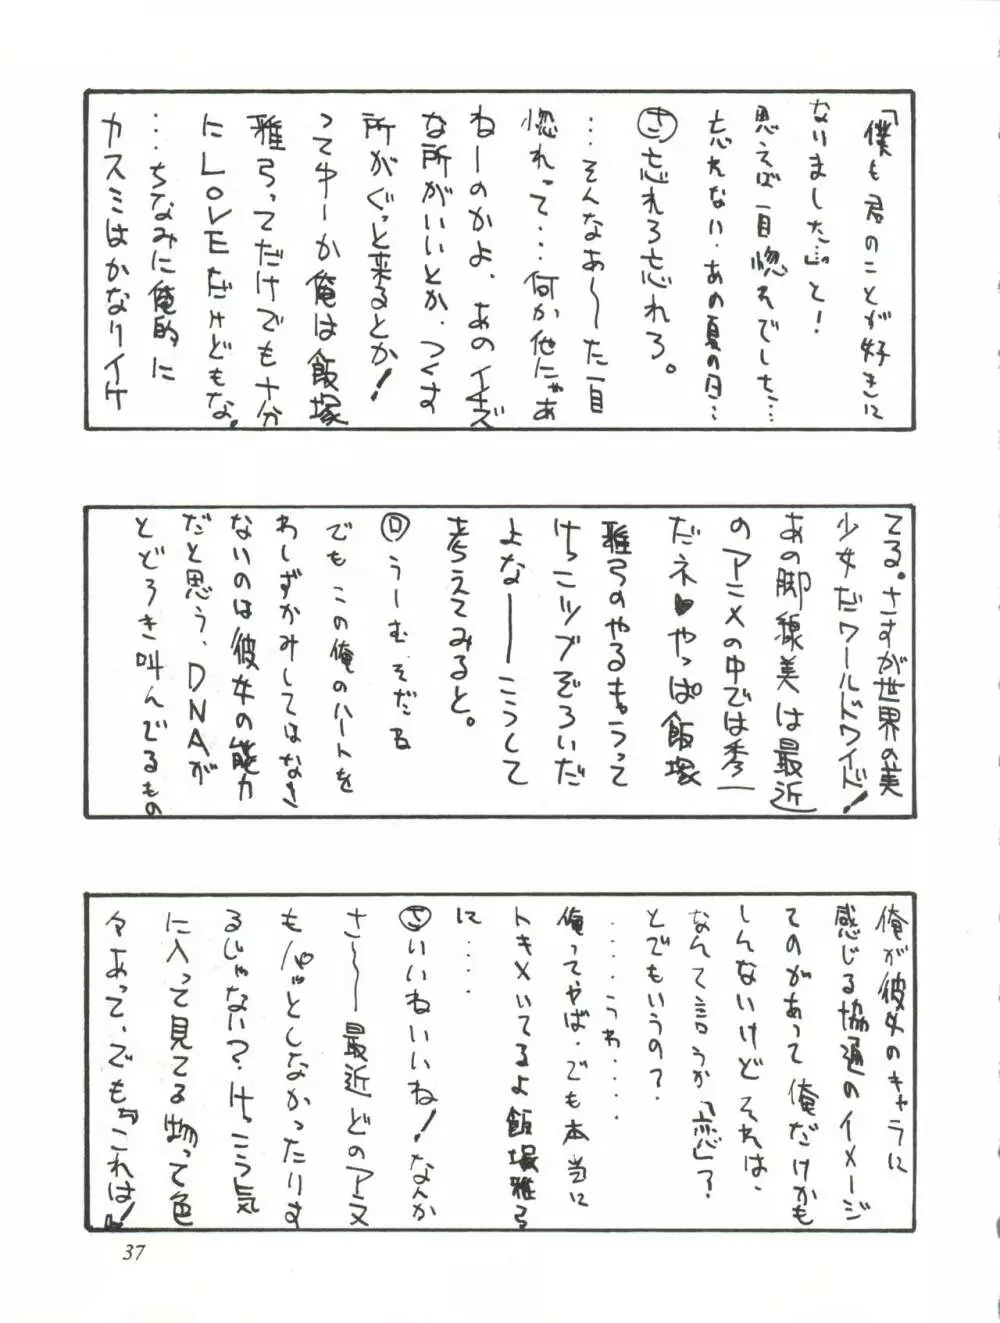 「僕も君のことが好きに
なりました…。」と!
思えば一目惚れでした…
忘れない.あの夏の日…
㋚忘れろ忘れろ。
…そんなあ〜った一目
惚れって…何か他にゃあ
ねーのかよ.あのイキズ
な所がいいとか.つくす
所がぐっと来るとか!
ってゆーか俺は飯塚
雅弓ってだけでも十分
にLOVEだけどもな。
…ちなみに俺的に
カスミはかなりイケ
てる。さすが世界の美
少女だワールドワイド!
あの脚線美は最近
のアニメの中では秀一
だネ♥やっぱ飯塚
雅弓のやるもっって
けっこツブぞろいだ
よなーーこうして
考えてみると。
㋺うーむ.そだね
でもこの俺のハートを
わしずかみしてはなさ
ないのは彼女の能力
だと思う.DNAが
とどろき叫んでるもの
俺が彼女のキャラに
感じる協通のイメージ
てのがあって俺だけかも
しんないけどそれは、
なんて言うか「恋」?
とでもいうの?
……うわ……
俺ってやば.でも本当に
トキメいてるよ飯塚雅弓
に……
㋚いいねいいね!なんか
さ〜〜最近どのアニメ
もパッとしなかったりす
るじゃない?けっこう気
に入って見てる物って色
々あって、でも『これは!』